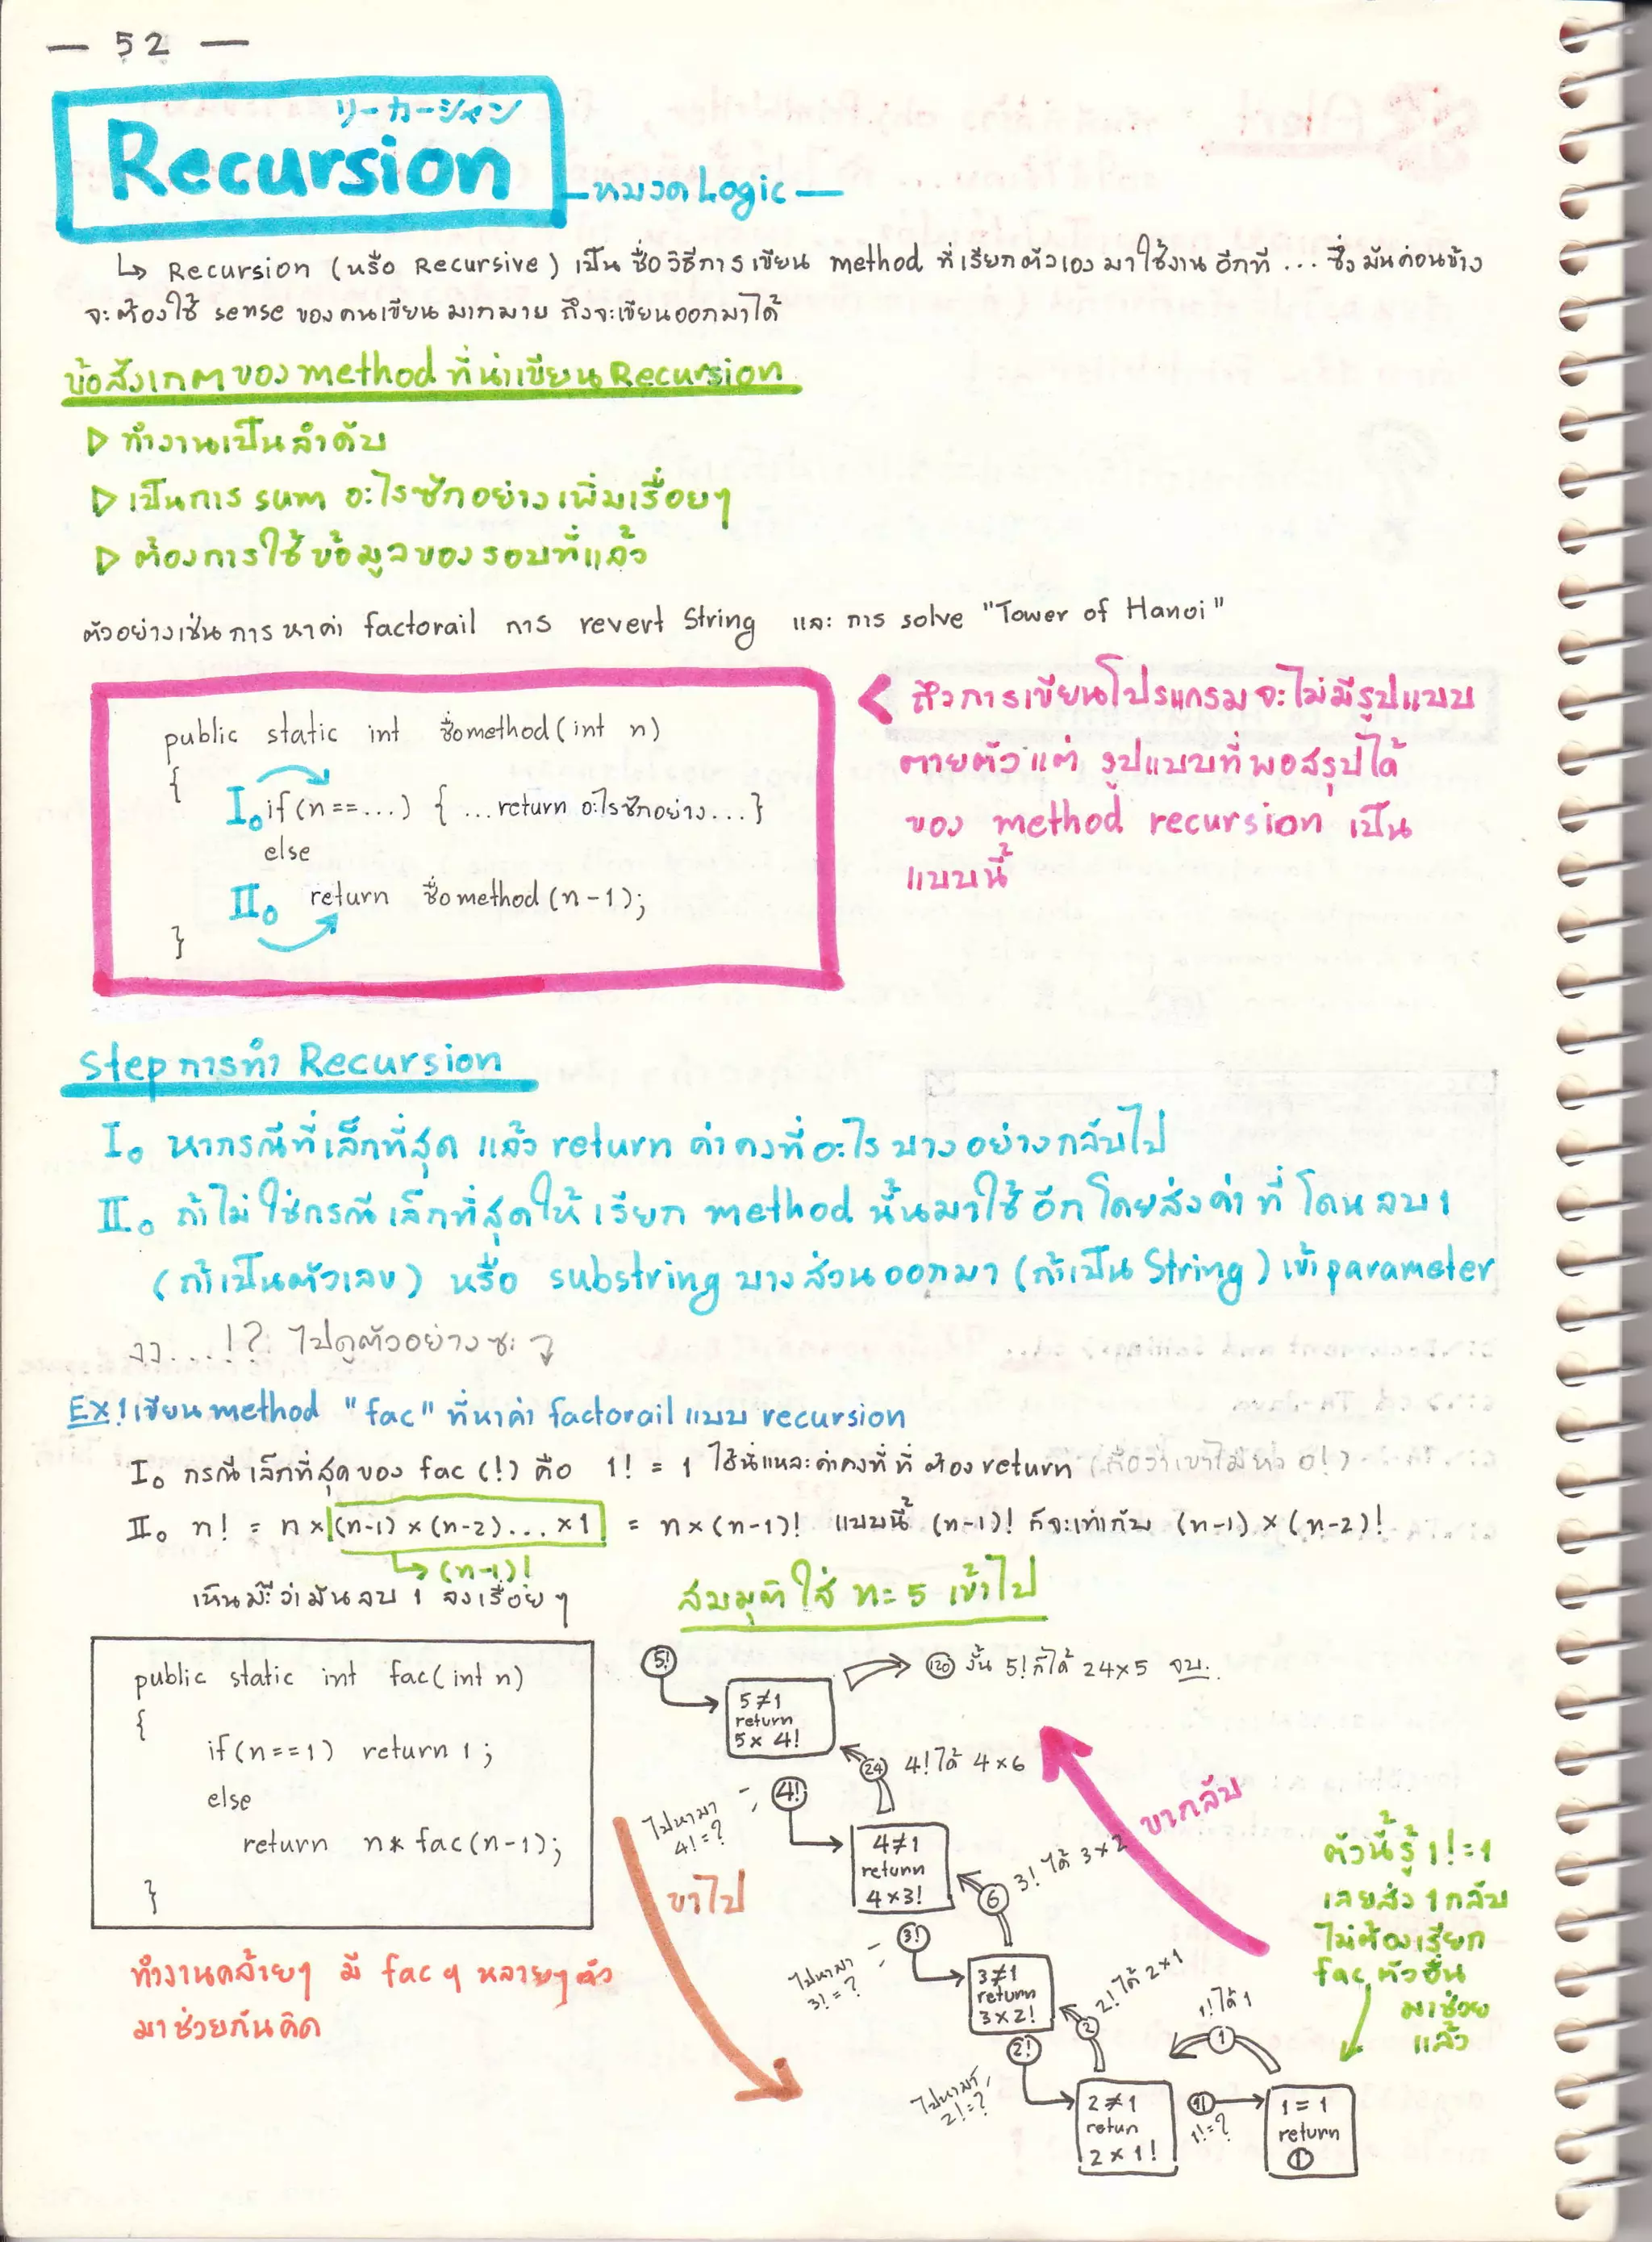 — 52 —
リーカーション
Recursion
— หมวด Logic —
↳ Recursion (หรือ Recursive) เป็น ชื่อวิธีการเขียน method ที่เรียกตัวเอง มาใช้งาน อีกที ... ซึ่งมันค่อนข้าง
จะต้องใช้ sense ของคนเขียนมากมาย ถึงจะเขียนออกมาได้
ข้อสังเกตของ method ที่น่าเขียน Recursion
▷ ทำงานเป็นลำดับ
▷ เป็นการ sum อะไรซักอย่างเพิ่มเรื่อยๆ
▷ ต้องการใช้ข้อมูลของรอบที่แล้ว
ตัวอย่างเช่นการหาค่า factorail การ revert String และ การ solve "Tower of Hanoi"
public static int ชื่อmethod(int n)
{
I. if(n==...) { ...return อะไรซักอย่าง...}
else
II. return ชื่อmethod(n-1);
}
< ถึงการเขียนโปรแกรมจะไม่มีรูปแบบ
ตายตัว แต่ รูปแบบที่พอสรุปได้
ของ method recursion เป็น
แบบนี้
Step การทำ Recursion
I. หากรณีที่เล็กที่สุด แล้ว return ค่าคงที่อะไร บางอย่างกลับไป
II. ถ้าไม่ใช่กรณีเล็กที่สุดให้ เรียก method นั้นมาใช้ อีก โดยส่งค่าที่ โดน ลบ 1
(ถ้าเป็นตัวเลข) หรือ substring บางส่วนออกมา (ถ้าเป็น String) เข้า parameter
งง....!? ไปดูตัวอย่างซะ
Ex1 เขียน method "fac" ที่หาค่า factorail แบบ recursion
I. กรณีเล็กที่สุดของ fac (!) คือ 1! = 1 ใช้นี่แหละค่าคงที่ ที่ ต้อง return (ถือว่าเขาไม่หา 0!)
II. n! = n×(n-1)×(n-2)...×1 = n×(n-1)! แบบนี้ (n-1)! ก็จะเท่ากับ (n-1)×(n-2)!
↳ (n-1)!
เห็นมะว่ามันลบ 1 ลงเรื่อยๆ
สมมุติใส่ n=5 เข้าไป
public static int fac(int n)
{
if(n==1) return 1;
else
return n* fac(n-1);
}
ทำงานคล้ายๆ มี fac ๆ หลายๆตัว
มาช่วยกันคิด
5!
5≠1
return
5× 4!
120 งั้น 5! ก็ได้ 24×5 จบ.
24 4! ได้ 4×6
ไปหามา
4!=?
4!
4≠1
return
4×3!
ขาไป
ขากลับ
6 3! ได้ 3×2
ไปหามา
3!=?
3!
3≠1
return
3×2!
2 2! ได้ 2×1
ไปหามา
2!=?
2!
2≠1
retun
2×1!
1!
1!=?
1! ได้ 1
1
1=1
return
1
ตัวนี้รู้ 1!=1
เลยส่ง 1 กลับ
ไม่ต้องเรียก
fac ตัวอื่น
มาช่วย
แล้ว